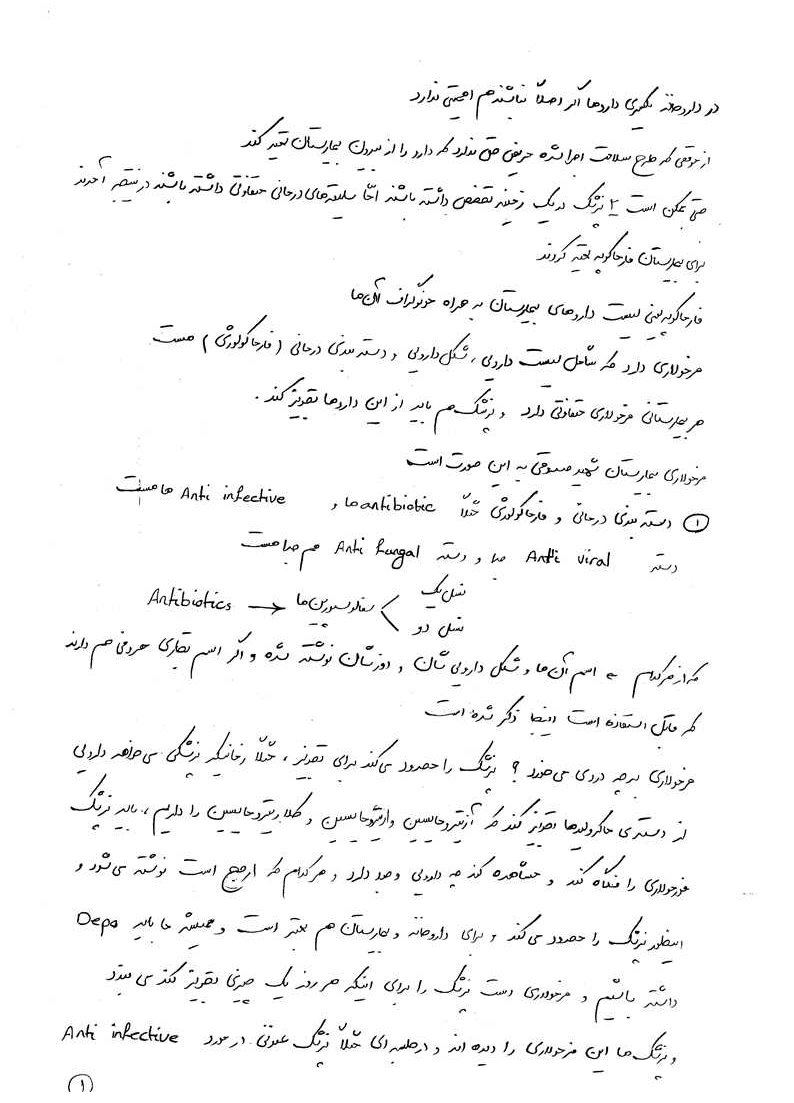 در داروخانه یکسری داروها اگر اصلاً نباشند هم اهمیتی ندارد
از موقعی که طرح سلامت اجرا شده مریض حق ندارد که دارو را از بیرون بیمارستان تهیه کند
حتی ممکن است ۲ پزشک در یک زمینه تخصص داشته باشند امّا سلیقه‌های درمانی متفاوتی داشته باشند در نتیجه آمدند
برای بیمارستان فارماکوپه تهیه کردند
فارماکوپه یعنی لیست داروهای بیمارستان به همراه مونوگراف آن‌ها
فرمولاری دارد که شامل لیست دارویی، شکل دارویی و دسته بندی درمانی (فارماکولوژی) هست
هر بیمارستانی فرمولاری متفاوتی دارد و پزشک هم باید از این داروها تجویز کند.
فرمولاری بیمارستان شهید صدوقی به این صورت است
① دسته بندی درمانی و فارماکولوژی مثلاً antibiotic ها و Anti infective ها هست
دسته Anti viral جدا و دسته Anti fungal هم جدا هست
نسل یک
Antibiotics → سفالوسپورین‌ها
نسل دو
که از هرکدام به اسم آن‌ها و شکل دارویی شان و دوزشان نوشته شده و اگر اسم تجاری معروفی هم دارند
که قابل استفاده است اینجا ذکر شده است
فرمولاری به چه دردی می‌خورد؟ پزشک را محدود می‌کند برای تجویز، مثلاً زمانیکه پزشکی می‌خواهد دارویی
از دسته‌ی ماکرولیدها تجویز کند که آزیترومایسین و اریترومایسین و کلاریترومایسین را داریم، باید پزشک
فرمولاری را نگاه کند و مشاهده کند چه دارویی وجود دارد و هر کدام که ارجح است نوشته می‌شود و
اینطور پزشک را محدود می‌کند و برای داروخانه و بیمارستان هم بهتر است و همیشه ما باید Depo
داشته باشیم و فرمولاری دست پزشک را برای اینکه هر روز یک چیزی تجویز کند می‌بندد
و پزشک ها این فرمولاری را دیده اند و در جلسه‌ای مثلاً پزشک عفونی در مورد Anti infective
①